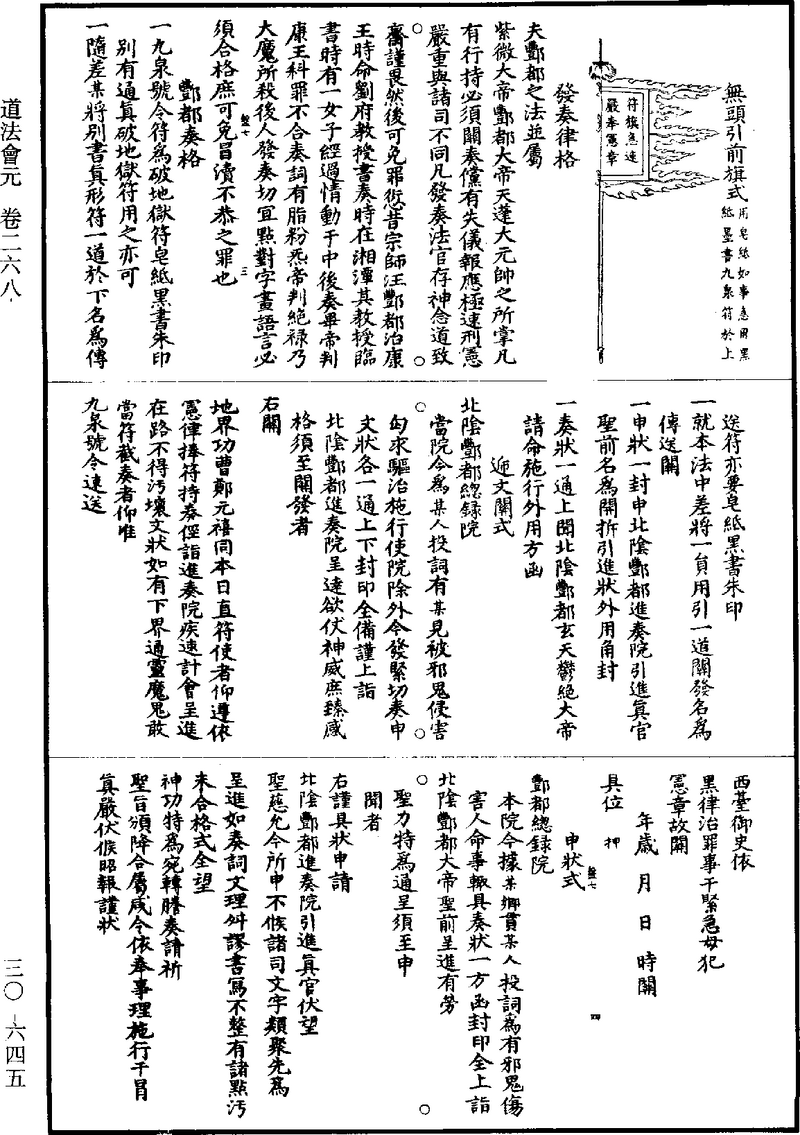 無頭引前旗式
用皂紙如事急用黑
紙墨書九泉符於上
符旗急速
嚴奉憲章
發奏律格
夫酆都之法並屬
紫微大帝酆都大帝天蓬大元帥之所掌凡
有行持必須關奏儻有失儀報應極速刑憲
嚴重與諸司不同凡發奏法官存神念道致
齋謹畏然後可免罪愆昔宗師汪酆都治康
王時命劉府教授書奏時在湘潭其教授臨
書時有一女子經過情動于中後奏畢帝判
康王科罪不合奏詞有脂粉炁帝判絕祿乃
大魔所殺後人發奏切宜點對字畫語言必
須合格庶可免冒瀆不恭之罪也
酆都奏格
一九泉號令符為破地獄符皂紙黑書朱印
別有通真破地獄符用之亦可
一隨差某將別書真形符一道於下名為傳
送符亦要皂紙黑書朱印
一就本法中差將一員用引一道關發名為
傳送關
一申狀一封申北陰酆都進奏院引進真官
聖前名為開拆引進狀外用角封
一奏狀一通上聞北陰酆都玄天鬱絕大帝
請命施行外用方函
遞文關式
北陰酆都總錄院
當院今為某人投詞有某見被邪鬼侵害
勾來驅治施行使院除外今發緊切奏申
文狀各一通上下封印全備謹上詣
北陰酆都進奏院呈達欲仗神威庶臻感
格須至關發者
右關
地界功曹鄭元禧同本日直符使者仰遵依
憲律捧符持奏徑詣進奏院疾速計會呈進
在路不得污壞文狀如有下界通靈魔鬼敢
當符截奏者仰唯
九泉號令速送
西臺御史依
黑律治罪事干緊急毋犯
憲章故關
年歲　月　日　時關
具位　押
申狀式
酆都總錄院
本院今據某鄉貫某人投詞為有邪鬼傷
害人命事輒具奏狀一方函封印全上詣
北陰酆都大帝聖前呈進有勞
聖力特為通呈須至申
聞者
右謹具狀申請
北陰酆都進奏院引進真官伏望
聖慈允今所申不候諸司文字類聚先為
呈進如奏詞文理舛謬書寫不整有諸點污
未合格式全望
神功特為宛轉謄奏請祈
聖旨頒降合屬咸令依奉事理施行干冒
真嚴伏候昭報謹狀
道法會元　卷二六八
三〇-六四五